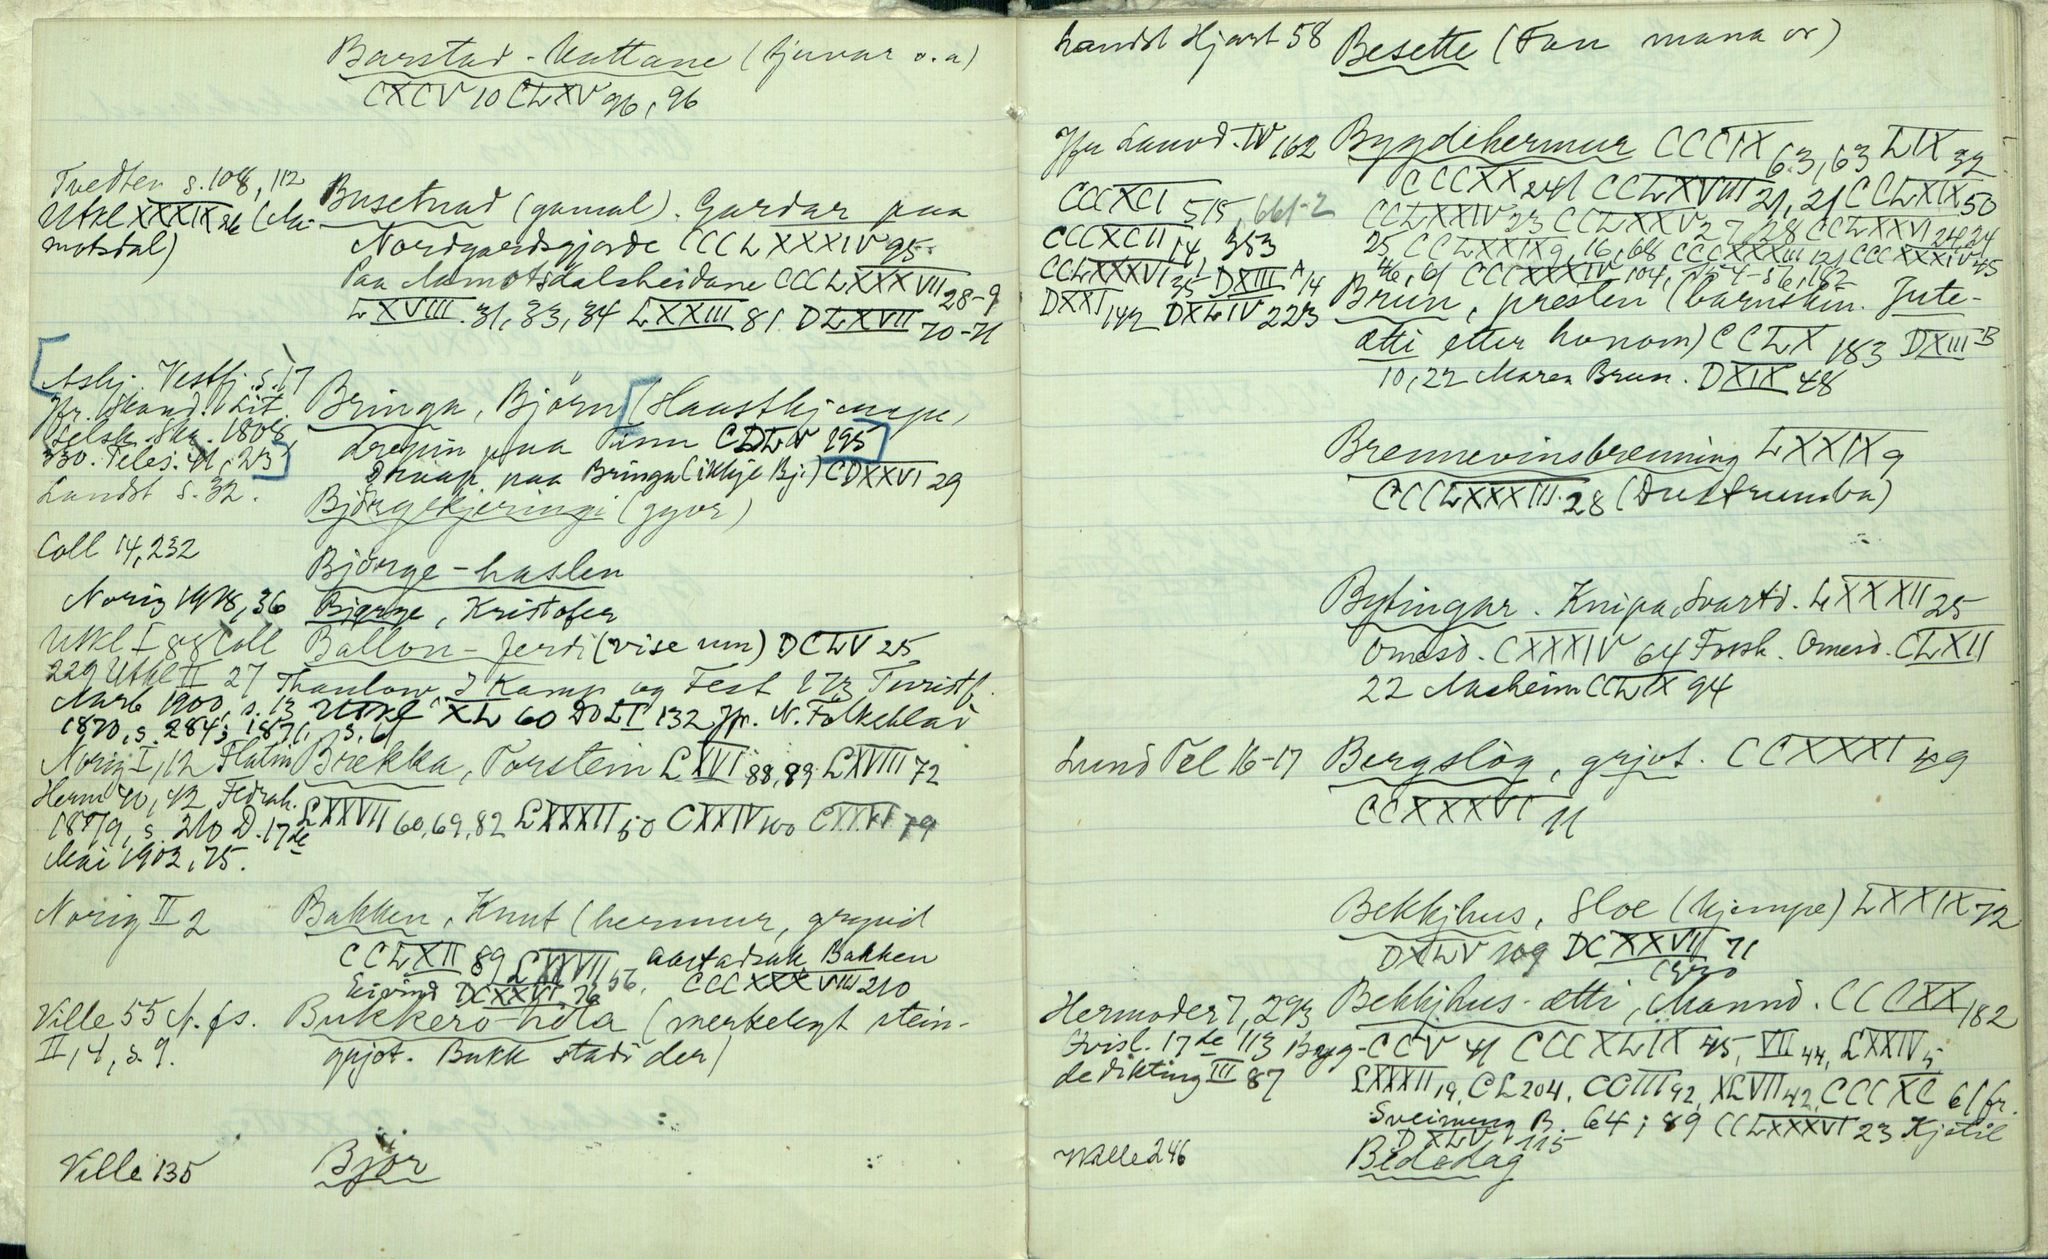 Barstad - Nattane (Kjuvar o.a)
CXCV 10 CLXV 96, 96
Tvedten s. 108, 112
Busetnad (gamal). Gardar paa
Utkl XXXIX 26 (Aa-
motsdal)
Nordgaardsgjorde CCCLXXXIV 95.
Paa Aamotsdalsheidane CCCLXXXVII 28-9
LXVIII. 31, 33, 34 LXXIII 81 DLXVII 70-71
Asbj. Vestfj. s. 17
Jfr. Skand. Lit.
Selsk. Skr. 1808,
330. Teles. 41, 23
Landst s. 32.
Bringa, Björn (Hausthjempe,
drepin paa Tinn CDLV 295
Draap paa Bringa (ikkje Bj.) CDXXVI 29
Björgekjeringi (gyvr)
Coll 14, 232
Björge-haslen
Norig 1918, 36
Bjørge, Kristofer
Utkl I 88 Coll
Ballon-ferdi (vise um) DCLV 25
229 Utkl II 27 Thaulow, I Kamp og Fest 173 Turistf.
Aarb 1900, s. 13 Utkl XL 60 DCLI 132 Jfr. N. Folkeblad
1870, s. 284; 1871, s. 61
Norig I, 12 Flatin
Brekka, Torstein LXVI 88, 89 LXVIII 72
Herm 41, 42 Fedrah.
LXXVII 60, 69, 82 LXXXII 50 CXXIV 100 CXXVI 79
1879, s. 210 D. 17de
Mai 1902, 75.
Norig II 2
Bakken, Knut (hermur, grepid
CCLXII 89 LXXVII 56, aastadsak Bakken
Eivind DCXXVI 76 CCCXXXVIII 210
Ville 55 N. fs.
II, 4, s. 9.
Bukkerø-hola (merkelegt stein-
grjot. Bukk stadi der)
Ville 135
Bjør
Landst Hjart 58 Besette (Fan mana or)
Jfr Landst. IV 162
Bygdehermur CCCIX 63, 63 LIX 32
CCCXX 241 CCLXVIII 21, 21 CCLXIX 50
CCLXXIV 23 CCLXXV 27, 28 CCLXXVI 24, 24
25 CCLXXIX 9, 16, 68 CCCXXXIII 121 CCCXXXIV 45
46, 61 CCCXXXIV 104, 154-56, 182
CCCXCI 515, 661-2
CCCXCII 14 353
CCLXXXVI 35 DXIII A 14
DXXI 142 DXLIV 223
Brun, presten (barnskin. Jute-
ætti etter honom) CCLX 183 DXIII B
10, 22 Maren Brun. DXIX 48
Brennevinsbrenning LXXIX 9
CCCLXXXIII 28 (Dustrumba)
Bytingar. Knipa, Svartd. LXXXII 25
Omesd. CXXXIV 64 Forsk. Omesd. CLXII
22 Aasheim CCLIX 94
Lund Tel 16-17
Bergslög, grjot. CCXXXI 49
CCXXXVI 11
Bekkjhus, Sloe (kjempe) LXXIX 72
DXLV 109 DCXXVII 71
Hermoder 7, 293
Bekkjhus-ætti, Mannd. CCCXX 182
Forsl. 17de 113 Byg-
dedikting III 87
CCV 41 CCCXLIX 45, VII 44, LXXIV 5
LXXXII 19, CL 204, CCIII 92, XLVII 42, CCCXC 61 fr.
Sveinung B. 64; 89 CCLXXXVI 23 Kjetil
DXLV 115
Wille 246
Bededag